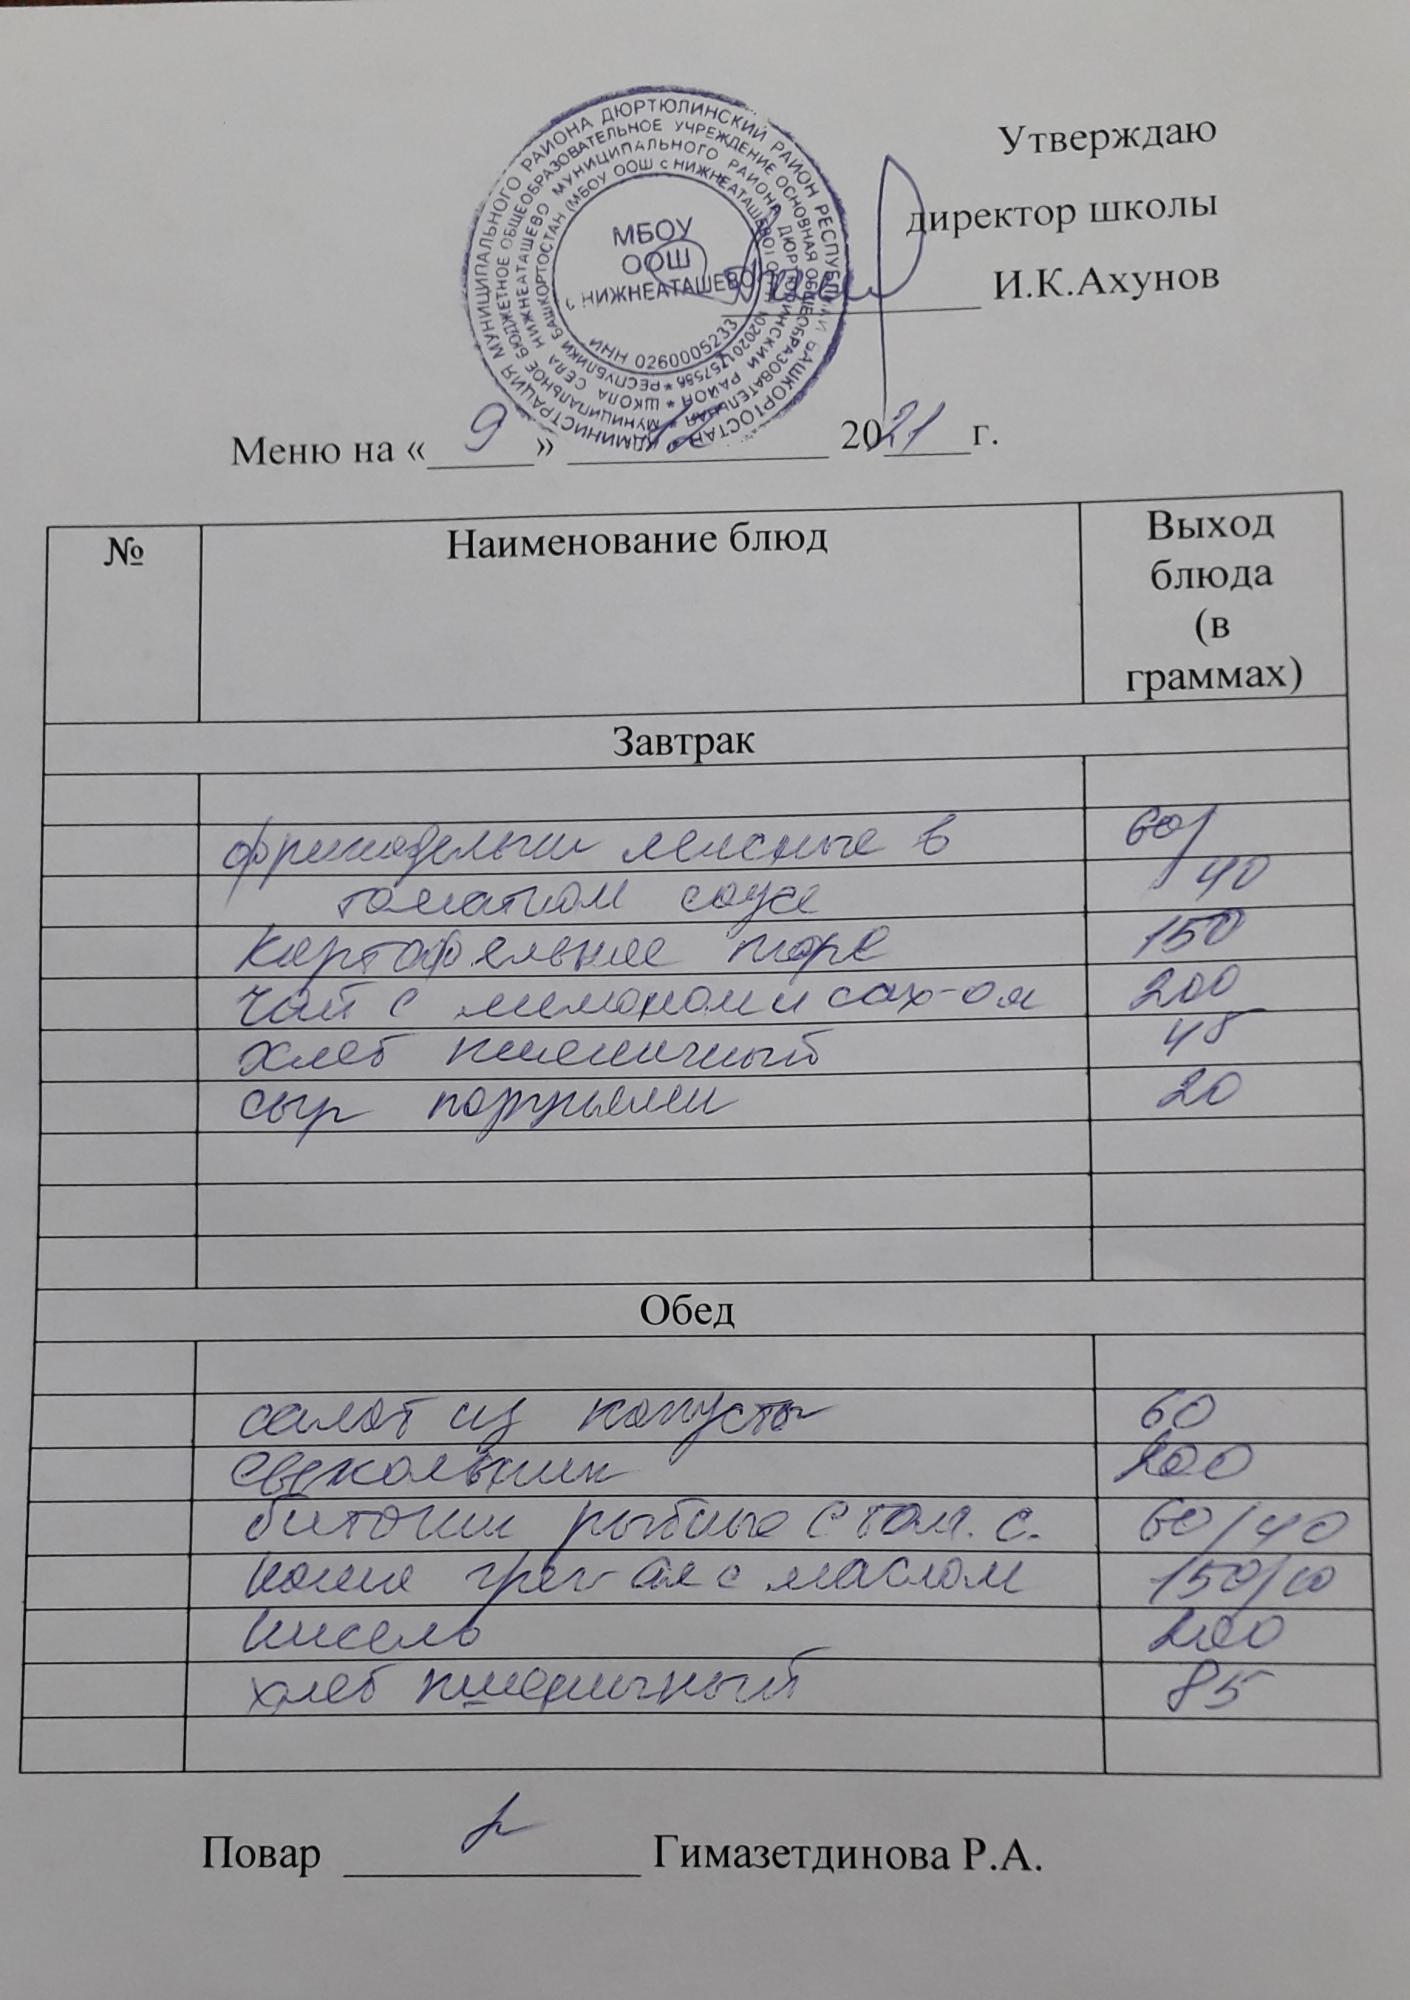 Утверждаю
директор школы
И.К.Ахунов
АДМИНИСТРАЦИЯ МУНИЦИПАЛЬНОГО РАЙОНА ДЮРТЮЛИНСКИЙ РАЙОН РЕСПУБЛИКИ БАШКОРТОСТАН
МУНИЦИПАЛЬНОЕ БЮДЖЕТНОЕ ОБЩЕОБРАЗОВАТЕЛЬНОЕ УЧРЕЖДЕНИЕ ОСНОВНАЯ ОБЩЕОБРАЗОВАТЕЛЬНАЯ
ШКОЛА СЕЛА НИЖНЕАТАШЕВО МУНИЦИПАЛЬНОГО РАЙОНА ДЮРТЮЛИНСКИЙ РАЙОН
РЕСПУБЛИКИ БАШКОРТОСТАН (МБОУ ООШ с НИЖНЕАТАШЕВО)
МБОУ
ООШ
с НИЖНЕАТАШЕВО
ИНН 0260005233
Меню на «9» 2021 г.
№ Наименование блюд Выход
блюда
(в
граммах)
Завтрак
фрикадельки мясные в 60/
томатном соусе 40
Картофельное пюре 150
Чай с лимоном и сах-ом 200
хлеб пшеничный 45
сыр порциями 20
Обед
салат из капусты 60
свекольник 200
биточки рыбные с том. с. 60/40
каша греч-ая с маслом 150/10
кисель 200
хлеб пшеничный 85
Повар Гимазетдинова Р.А.